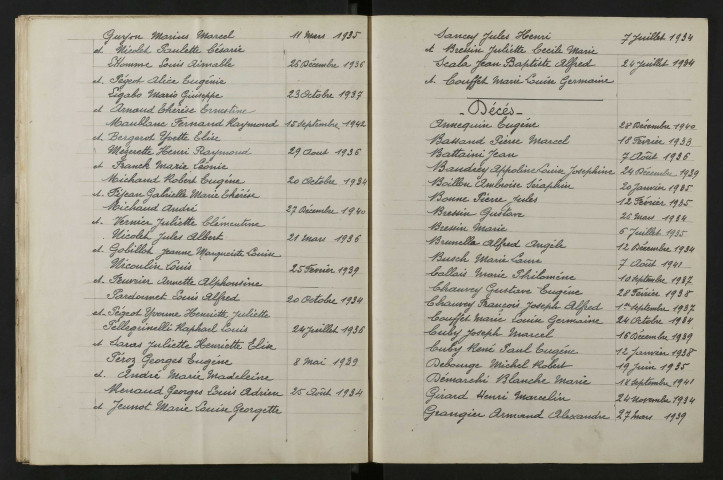 Guyon Marius Marcel 11 Mars 1935
et Nicolet Paulette Césarie
Lhomme Louis Aimable 26 Décembre 1936
et Pégeot Alice Eugénie
Ligabo Mario Giuseppe 23 Octobre 1937
et Arnaud Thérèse Ernestine
Maublanc Fernand Raymond 15 Septembre 1942
et Bergerot Yvette Elise
Moynette Henri Raymond 29 Aout 1936
et Franck Marie Léonie
Michaud Robert Eugène 20 Octobre 1934
et Péjean Gabrielle Marie Thérèse
Michaud André 27 Décembre 1940
et Vernier Juliette Clémentine
Nicolet Jules Albert 21 Mars 1936
et Gobillot Jeanne Marguerite Louise
Nicoulin Louis 25 Février 1939
et Feuvrier Annette Alphonsine
Pardonnet Louis Alfred 20 Octobre 1934
et Pégeot Yvonne Henriette Juliette
Pellegrinelli Raphael Louis 24 Juillet 1936
et Saras Juliette Henriette Elise
Péroz Georges Eugène 8 Mai 1939
et André Marie Madeleine
Renaud Georges Louis Adrien 25 Août 1934
et Jeunot Marie Louise Georgette
Sancey Jules Henri 7 Juillet 1934
et Bressin Juliette Cecile Marie
Scala Jean Baptiste Alfred 24 Juillet 1934
et Couffet Marie Louise Germaine
- Décès -
Annequin Eugène 28 Décembre 1940
Bassand Pierre Marcel 18 Février 1933
Battaini Jean 7 Août 1936
Baudrey Appoline Louise Josephine 24 Décembre 1939
Boillon Ambroise Séraphin 20 Janvier 1935
Bonne Pierre Jules 12 Février 1935
Bressin Gustave 26 Mars 1934
Bressin Marie 6 Juillet 1935
Brunella Alfred Angèle 12 Décembre 1934
Busch Marie Laure 7 Août 1941
Callais Marie Philomène 10 Septembre 1937
Chauvey Gustave Eugène 28 Février 1935
Chauvey François Joseph Alfred 1er Septembre 1937
Couffet Marie Louise Germaine 24 Octobre 1934
Cuby Joseph Marcel 16 Décembre 1939
Cuby René Paul Eugène 12 Janvier 1938
Debourge Michel Robert 19 Juin 1935
Demarchi Blanche Marie 14 Septembre 1941
Girard Henri Marcelin 24 Novembre 1934
Grangier Armand Alexandre 27 Mars 1939